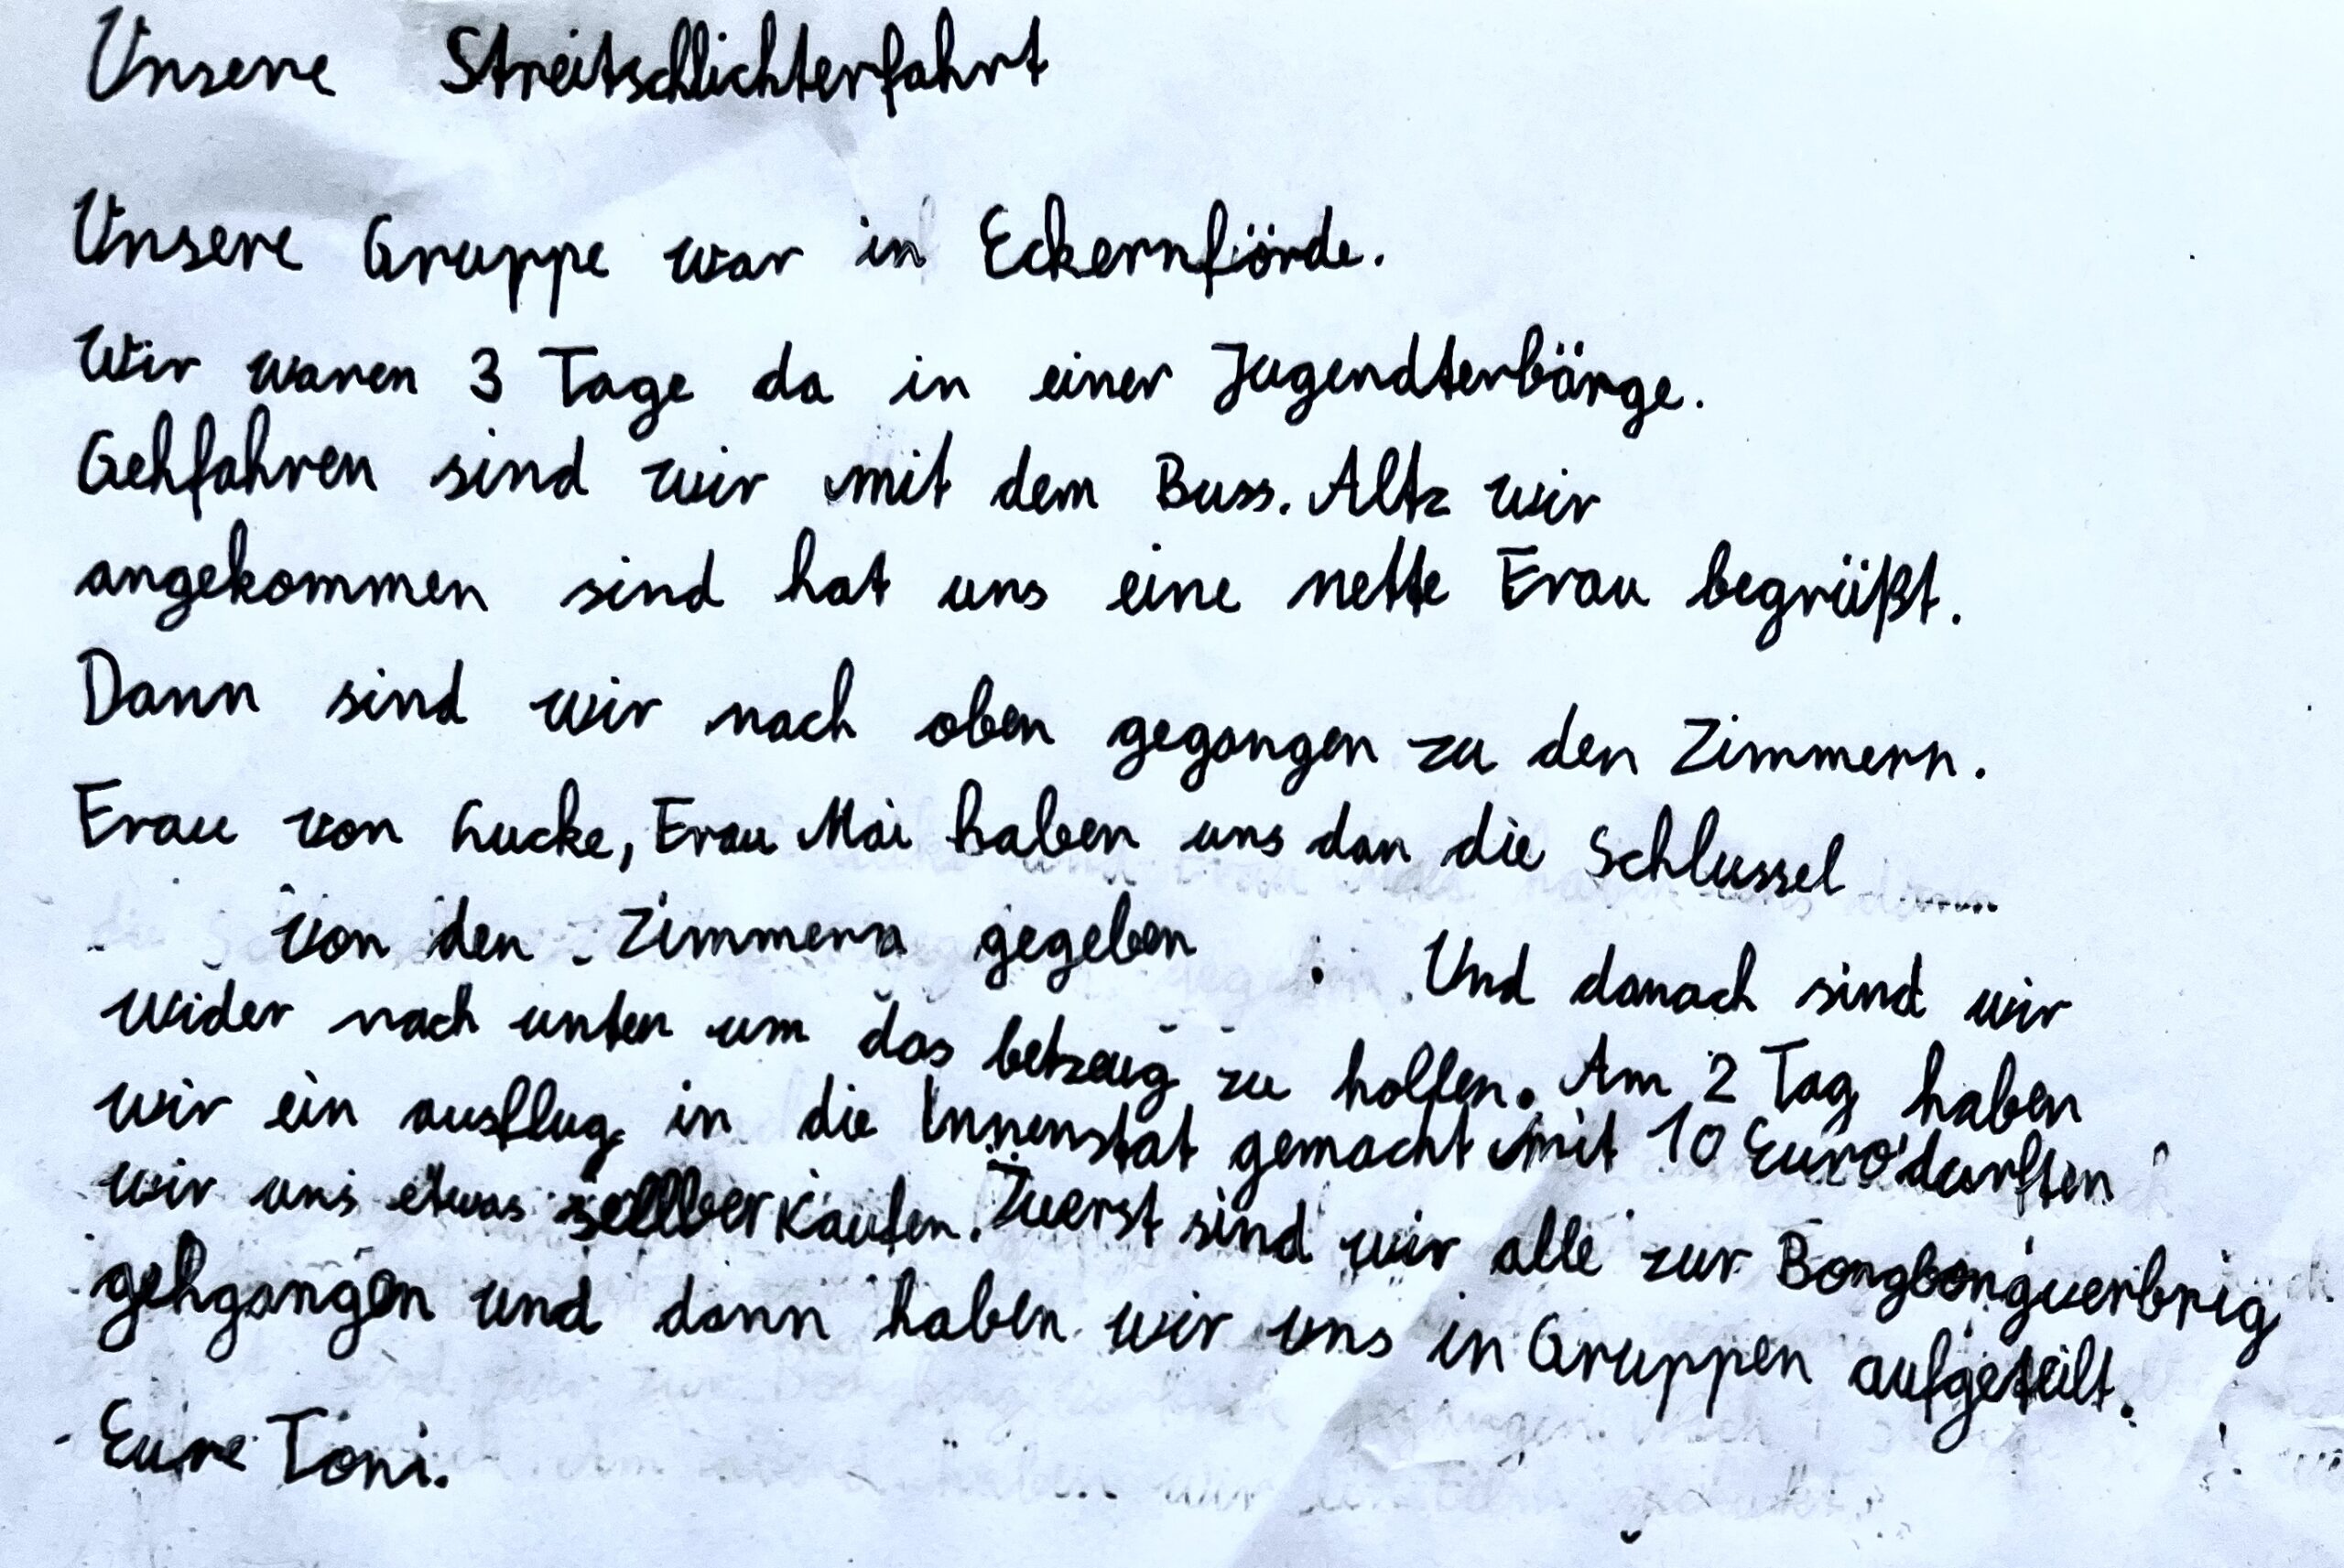 Unsere Streitschlichterfahrt
Unsere Gruppe war in Eckernförde.
Wir waren 3 Tage da in einer Jugendterbärge.
Gehfahren sind wir mit dem Buss. Altz wir
angekommen sind hat uns eine nette Frau begrüßt.
Dann sind wir nach oben gegangen zu den Zimmern.
Frau von Lucke, Frau Mai haben uns dan die Schlussel
von den Zimmern gegeben. Und danach sind wir
wider nach unten um das betzeug zu hollen. Am 2 Tag haben
wir ein ausflug in die Innenstat gemacht mit 10 Euro durften
wir uns etwas sellber kaufen. Zuerst sind wir alle zur Bongbongverbrig
gehgangen und dann haben wir uns in Gruppen aufgeteilt.
Eure Toni.